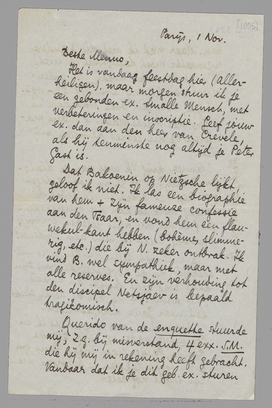 [1935]
Parijs, 1 Nov.
Beste Menno,
Het is vandaag feestdag hier (Aller-
heiligen), maar morgen stuur ik je
een gebonden ex. Smalle Mensch, met
verbeteringen en inscriptie. Geef jouw
ex. dan aan den heer van Crevel,
als hij tenminste nog altijd je Peter
Gast is.
Dat Bakoenin op Nietzsche lijkt,
geloof ik niet. Ik las een biographie
van hem + zijn fameuze confessie
aan den Tsaar, en vond hem een
kant hebben (bohème,
etc.) die bij N. zeker ontbrak. Ik
vind B. wel sympathiek, maar met
alle reserves. En zijn verhouding tot
den discipel Netsjajev is bepaald
tragikomisch.
Querido van de enquête stuurde
mij, z.g. bij misverstand, 4 exx. S.M.
die hij mij in rekening heeft gebracht.
Vandaar dat ik je dit geb. ex. sturen